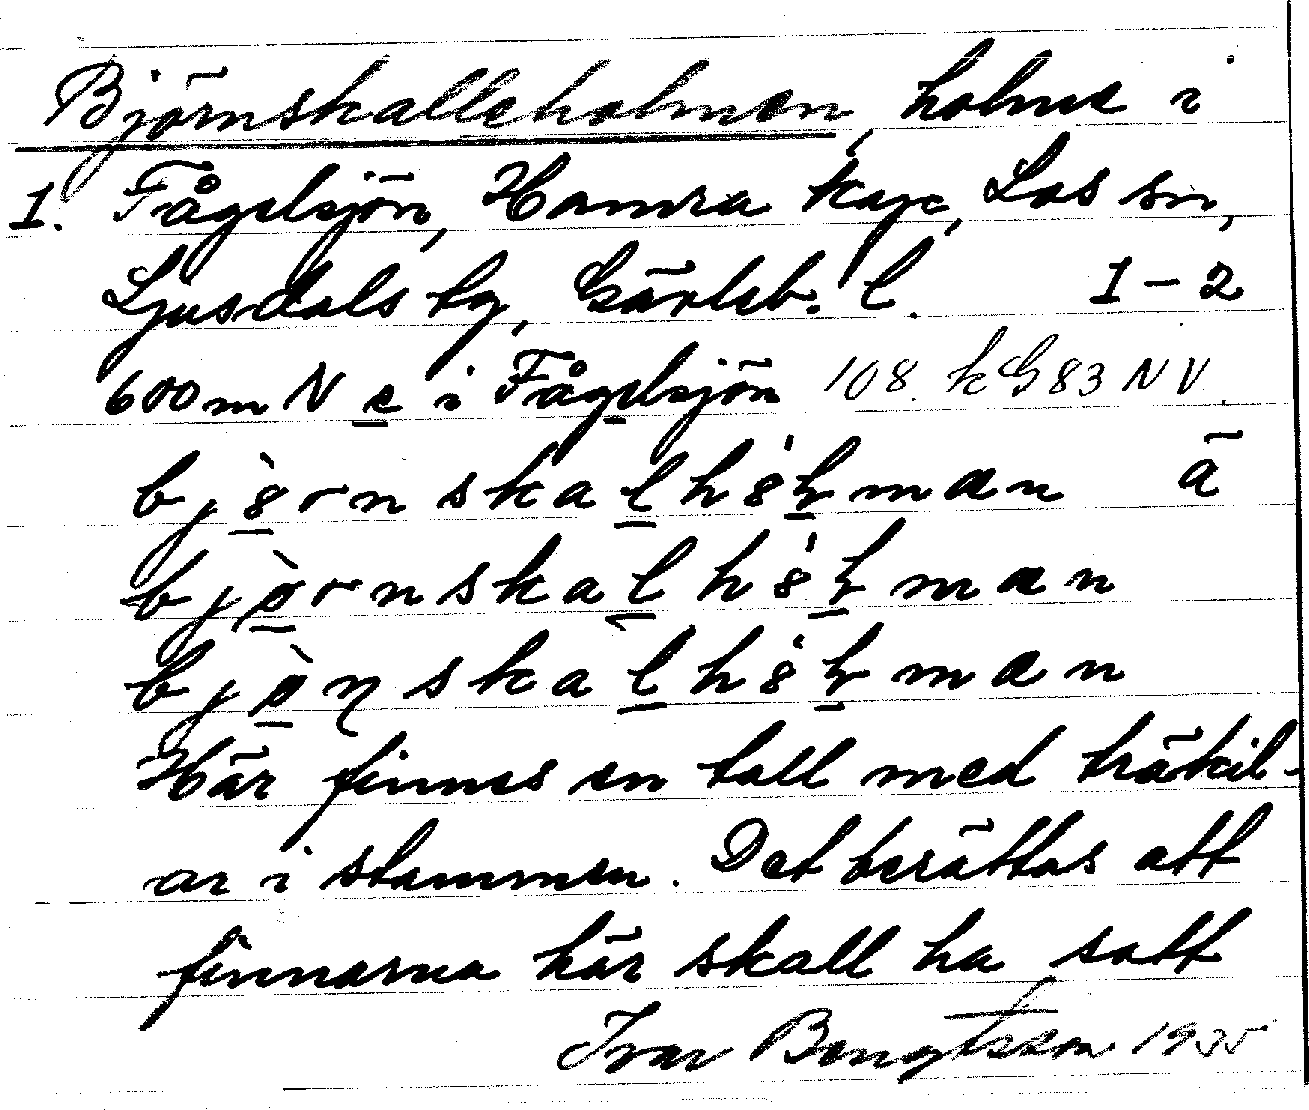 Björnskalleholmen, holme i
1. Fågelsjön, Hamra kap, Los sn,
Ljusdals tg, Gävleb. l. 1-2
600 m N e i Fågelsjön 108. kG 83 NV.
Här finnes en tall med träkil-
ar i stammen. Det berättas att
finnarna här skall ha satt
Ivar Bengtsson 1935